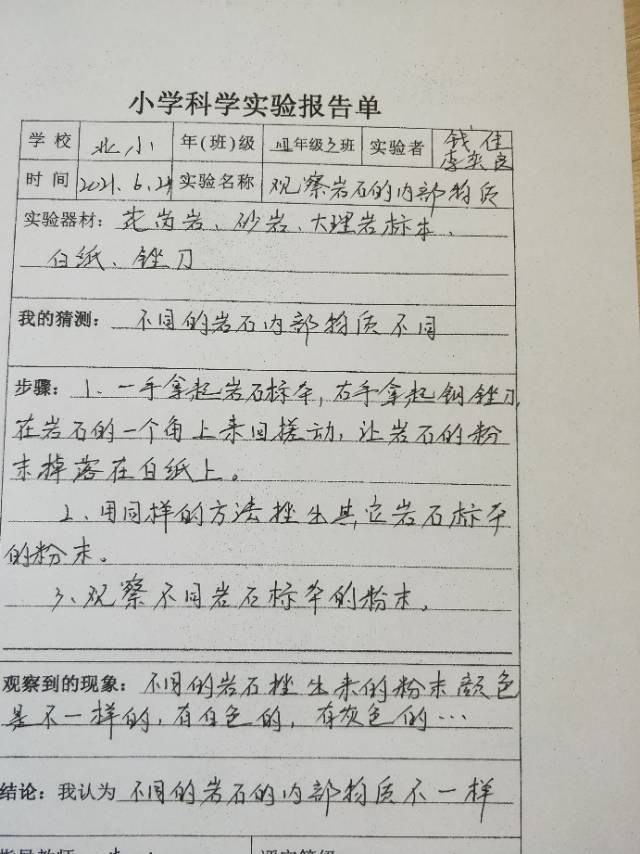 小学科学实验报告单
学校 北小 年(班)级 四年级3班 实验者 钱佳
李奕良
时间 2021.6.24 实验名称 观察岩石的内部物质
实验器材：花岗岩、砂岩、大理岩标本、
白纸、锉刀
我的猜测：不同的岩石内部物质不同
步骤：1、一手拿起岩石标本，右手拿起钢锉刀，
在岩石的一个角上来回搓动，让岩石的粉
末掉落在白纸上。
2、用同样的方法挫出其它岩石标本
的粉末。
3、观察不同岩石标本的粉末。
观察到的现象：不同的岩石挫出来的粉末颜色
是不一样的，有白色的，有灰色的…
结论：我认为不同的岩石的内部物质不一样
指导教师